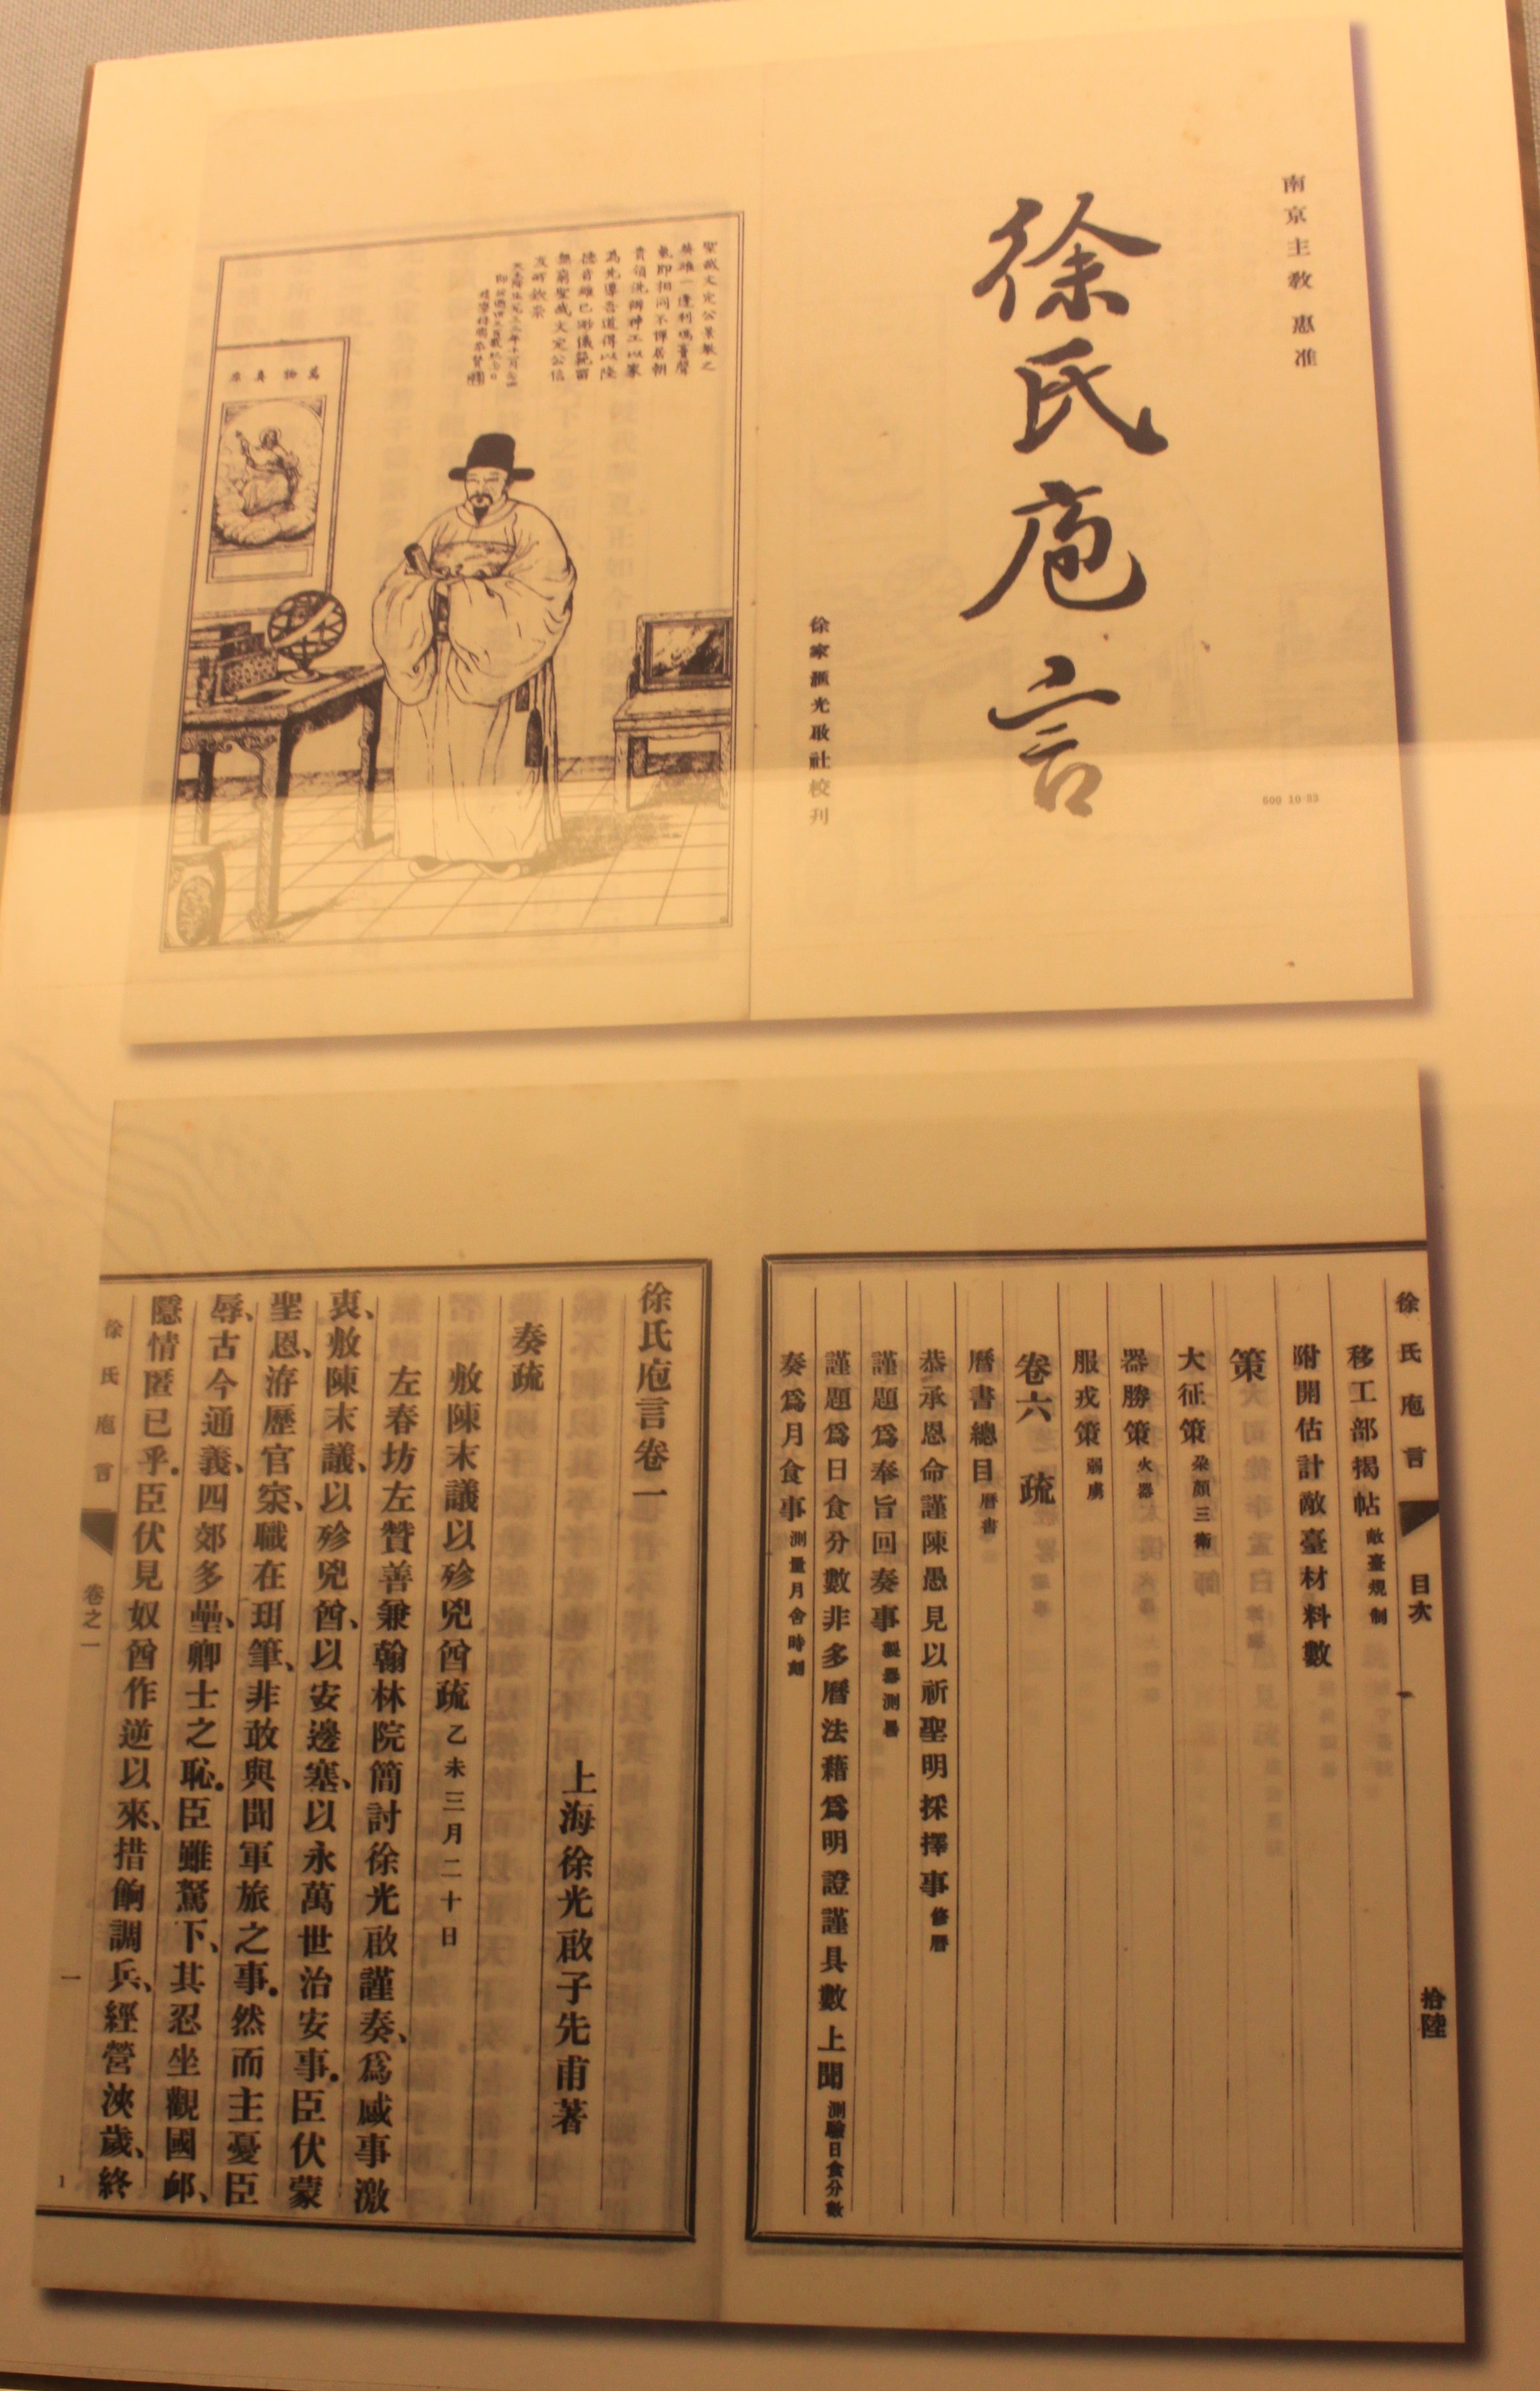 南京主教惠准
徐氏庖言
徐家滙光啟社校刋
600 10-33
聖敎文定公景敎之
英雄一逢利瑪竇聲
氣卽相同不憚居朝
貴領洗辦神工以家
爲先導吾道得以隆
德音雖已渺儀範留
無窮聖敎文定公信
友所欽崇
萬物真原
徐氏庖言
目次
拾陸
移工部揭帖 敵臺規制
附開估計敵臺材料數
策
大征策 朶顏三衛
器勝策 火器
服戎策 弱虜
卷六 疏
曆書總目 曆書
恭承恩命謹陳愚見以祈聖明採擇事 修曆
謹題爲奉旨回奏事 製器測晷
謹題爲日食分數非多曆法藉爲明證謹具數上聞 測驗日食分數
奏爲月食事 測量月食時刻
徐氏庖言卷一
上海徐光啟子先甫著
奏疏
敷陳末議以殄兇酋疏 乙未三月二十日
左春坊左贊善兼翰林院簡討徐光啟謹奏、爲感事激
衷、敷陳末議、以殄兇酋、以安邊塞、以永萬世治安事.臣伏蒙
聖恩、洊歷官寀、職在珥筆、非敢與聞軍旅之事.然而主憂臣
辱、古今通義、四郊多壘、卿士之恥.臣雖駑下、其忍坐觀國卹、
隱情匿已乎.臣伏見奴酋作逆以來、措餉調兵、經營浹歲、終
徐氏庖言
卷之一
一
1